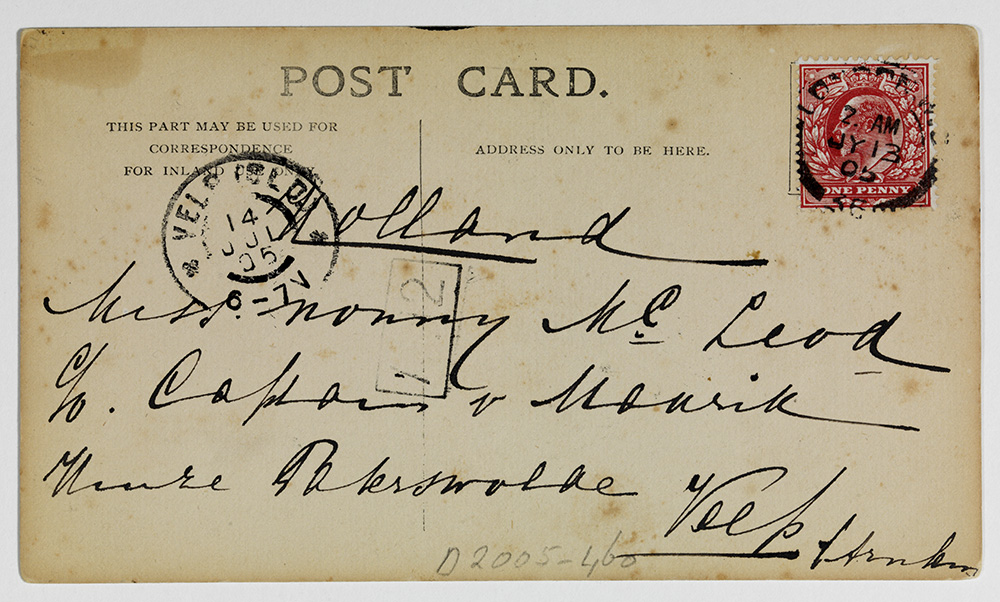 POST CARD.
THIS PART MAY BE USED FOR
CORRESPONDENCE
FOR INLAND ONLY.
ADDRESS ONLY TO BE HERE.
2. AM
JY 13
05
ONE PENNY
VELP (GLD)
14
JUL
05
6-7V
Holland
1 2
Miss. Nonny Mc Leod
c/o. Captain v Maurik
Huize Rekerswolde Velp
Arnhem
D2005-460